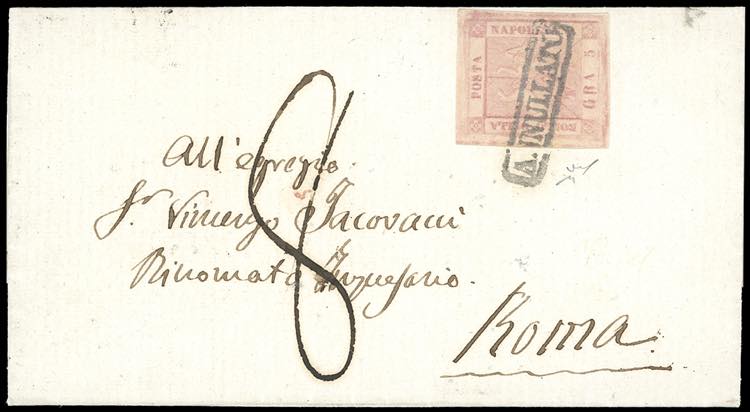 POSTA NAPOLETANA GRA 5
ANNULLATO
8
All'egregio
Sr. Vincenzo Jacovacci
Rinomato Impresario.
Roma